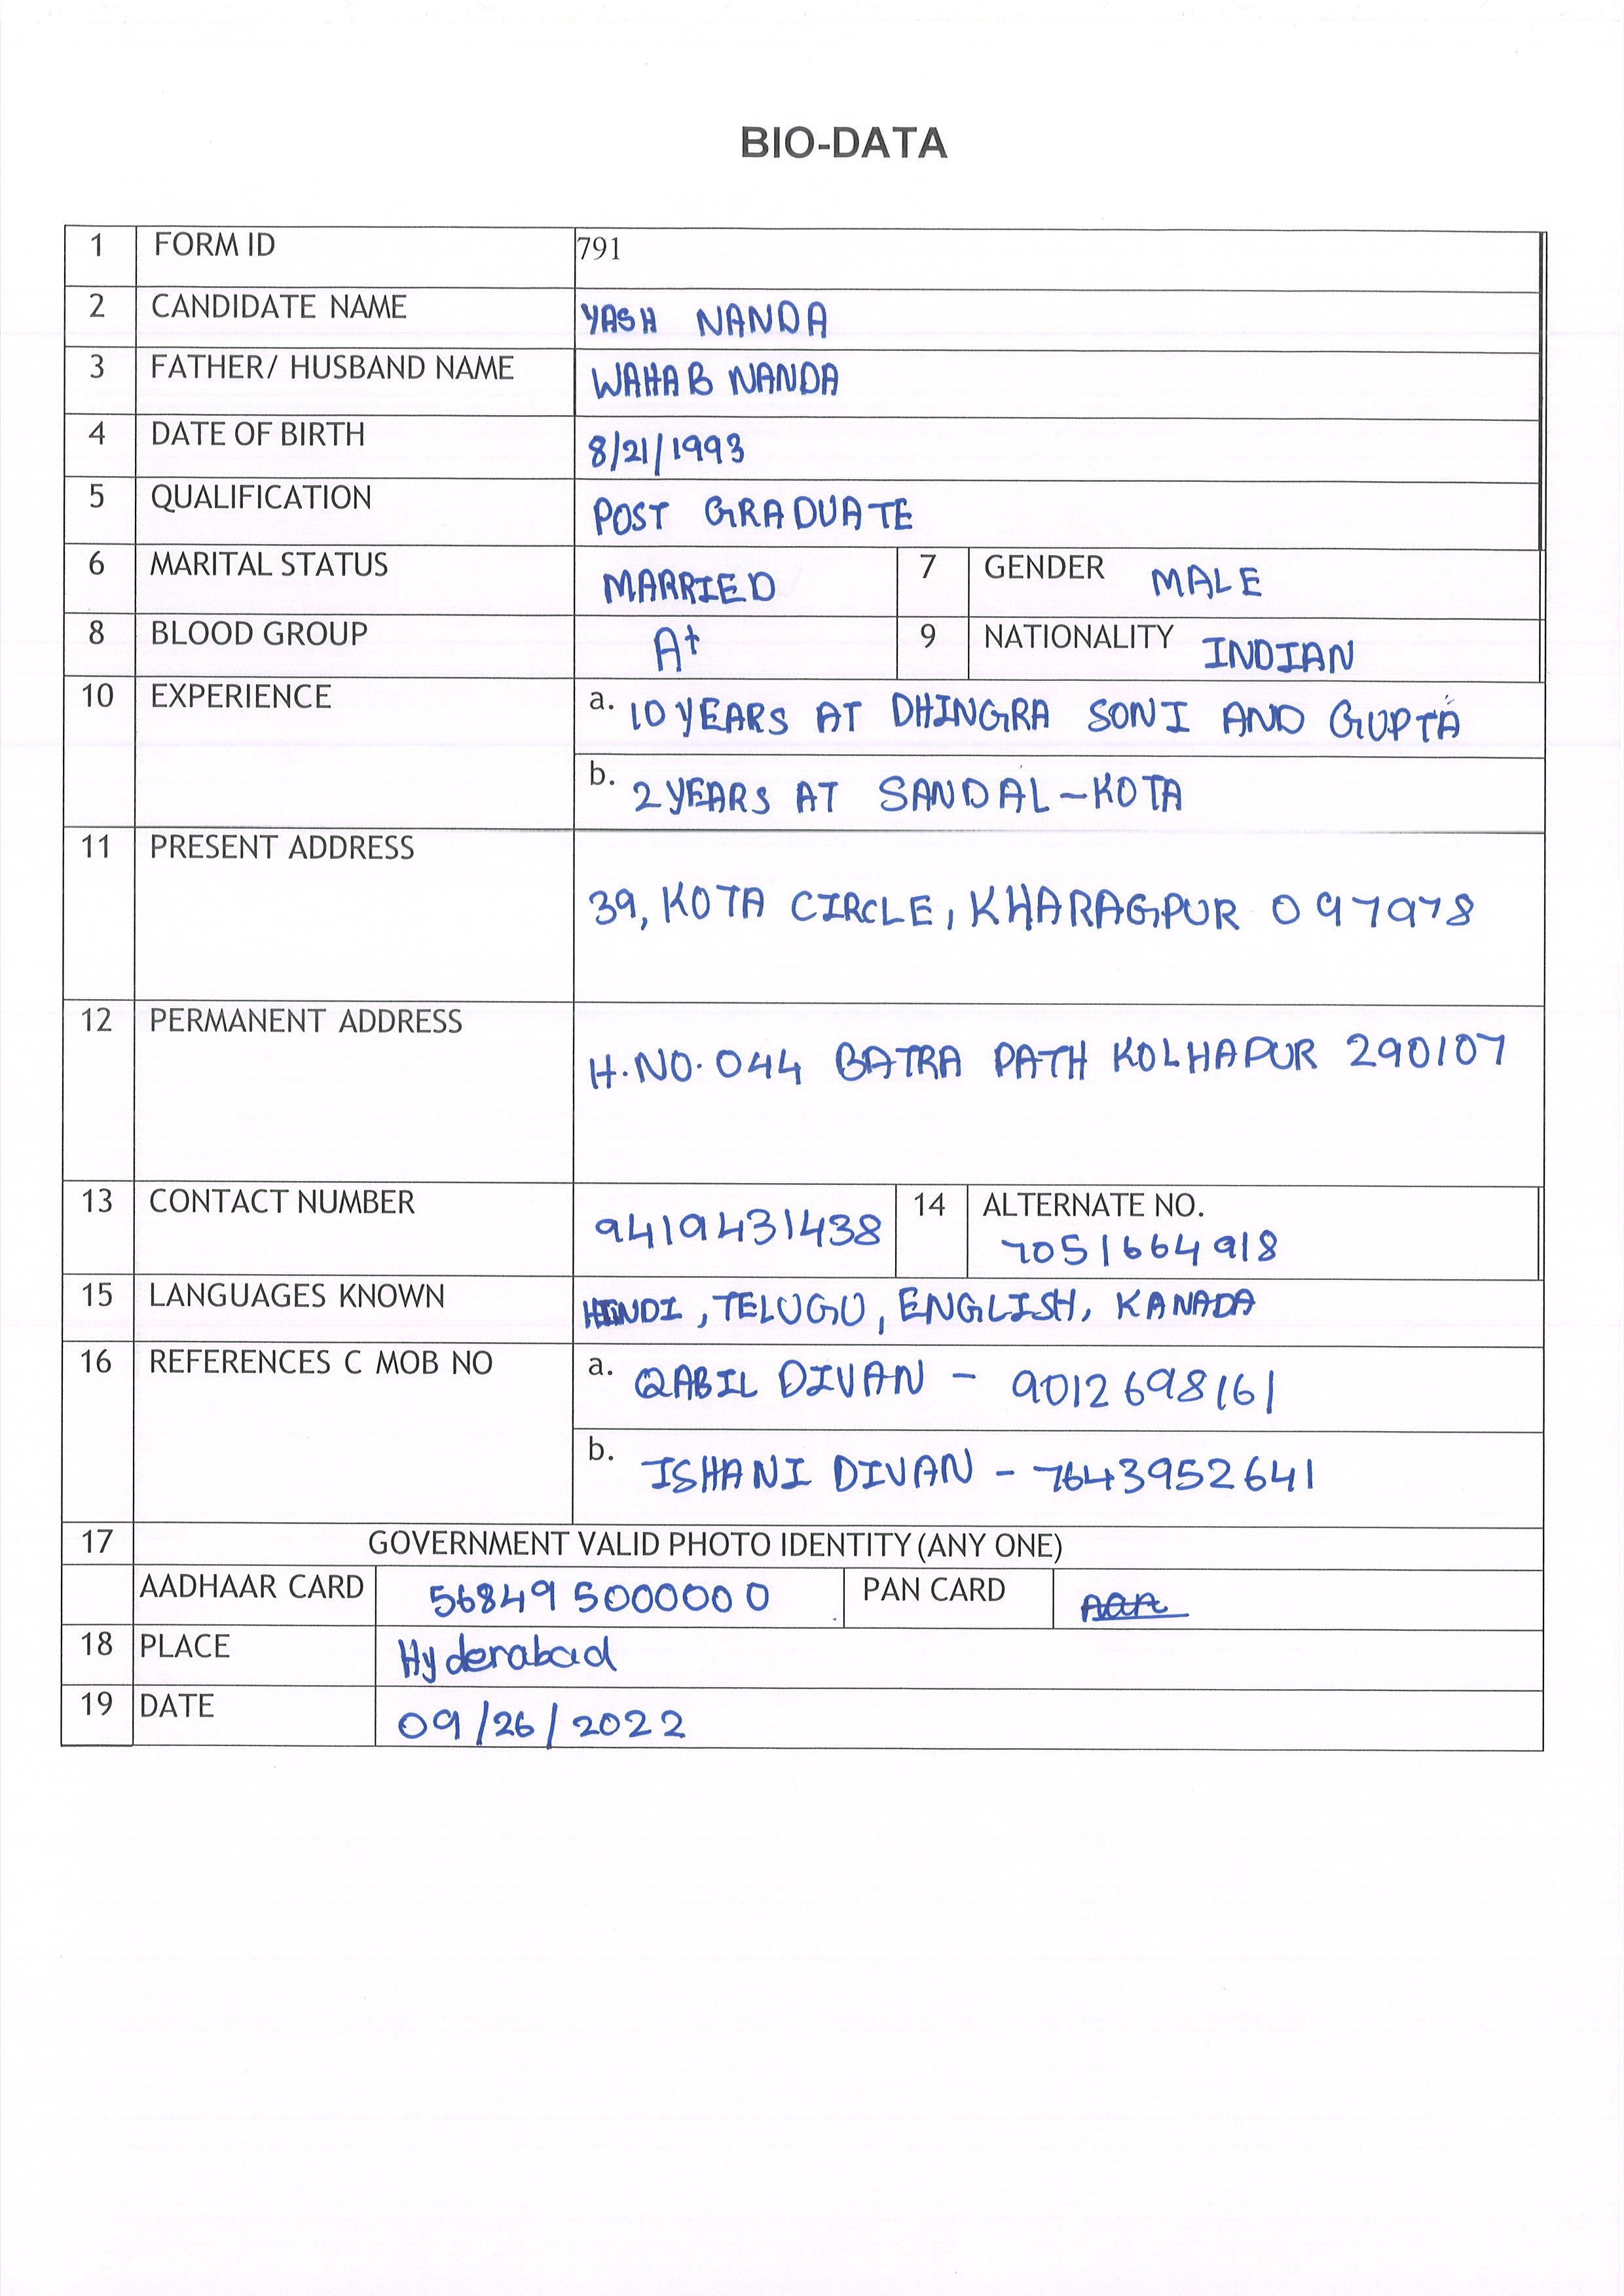 BIO-DATA
1 FORM ID 791
2 CANDIDATE NAME YASH NANDA
3 FATHER/ HUSBAND NAME WAHAB NANDA
4 DATE OF BIRTH 8/21/1993
5 QUALIFICATION POST GRADUATE
6 MARITAL STATUS MARRIED 7 GENDER MALE
8 BLOOD GROUP A+ 9 NATIONALITY INDIAN
10 EXPERIENCE a. 10 YEARS AT DHINGRA SONI AND GUPTA
b. 2 YEARS AT SANDAL-KOTA
11 PRESENT ADDRESS
39, KOTA CIRCLE, KHARAGPUR 097978
12 PERMANENT ADDRESS
H.NO. 044 BATRA PATH KOLHAPUR 290107
13 CONTACT NUMBER 9419431438 14 ALTERNATE NO.
7051664918
15 LANGUAGES KNOWN HINDI, TELUGU, ENGLISH, KANADA
16 REFERENCES C MOB NO a. QABIL DIVAN - 9012698161
b. ISHANI DIVAN - 76439952641
17 GOVERNMENT VALID PHOTO IDENTITY (ANY ONE)
AADHAAR CARD 568495000000 PAN CARD
18 PLACE Hyderabad
19 DATE 09/26/2022